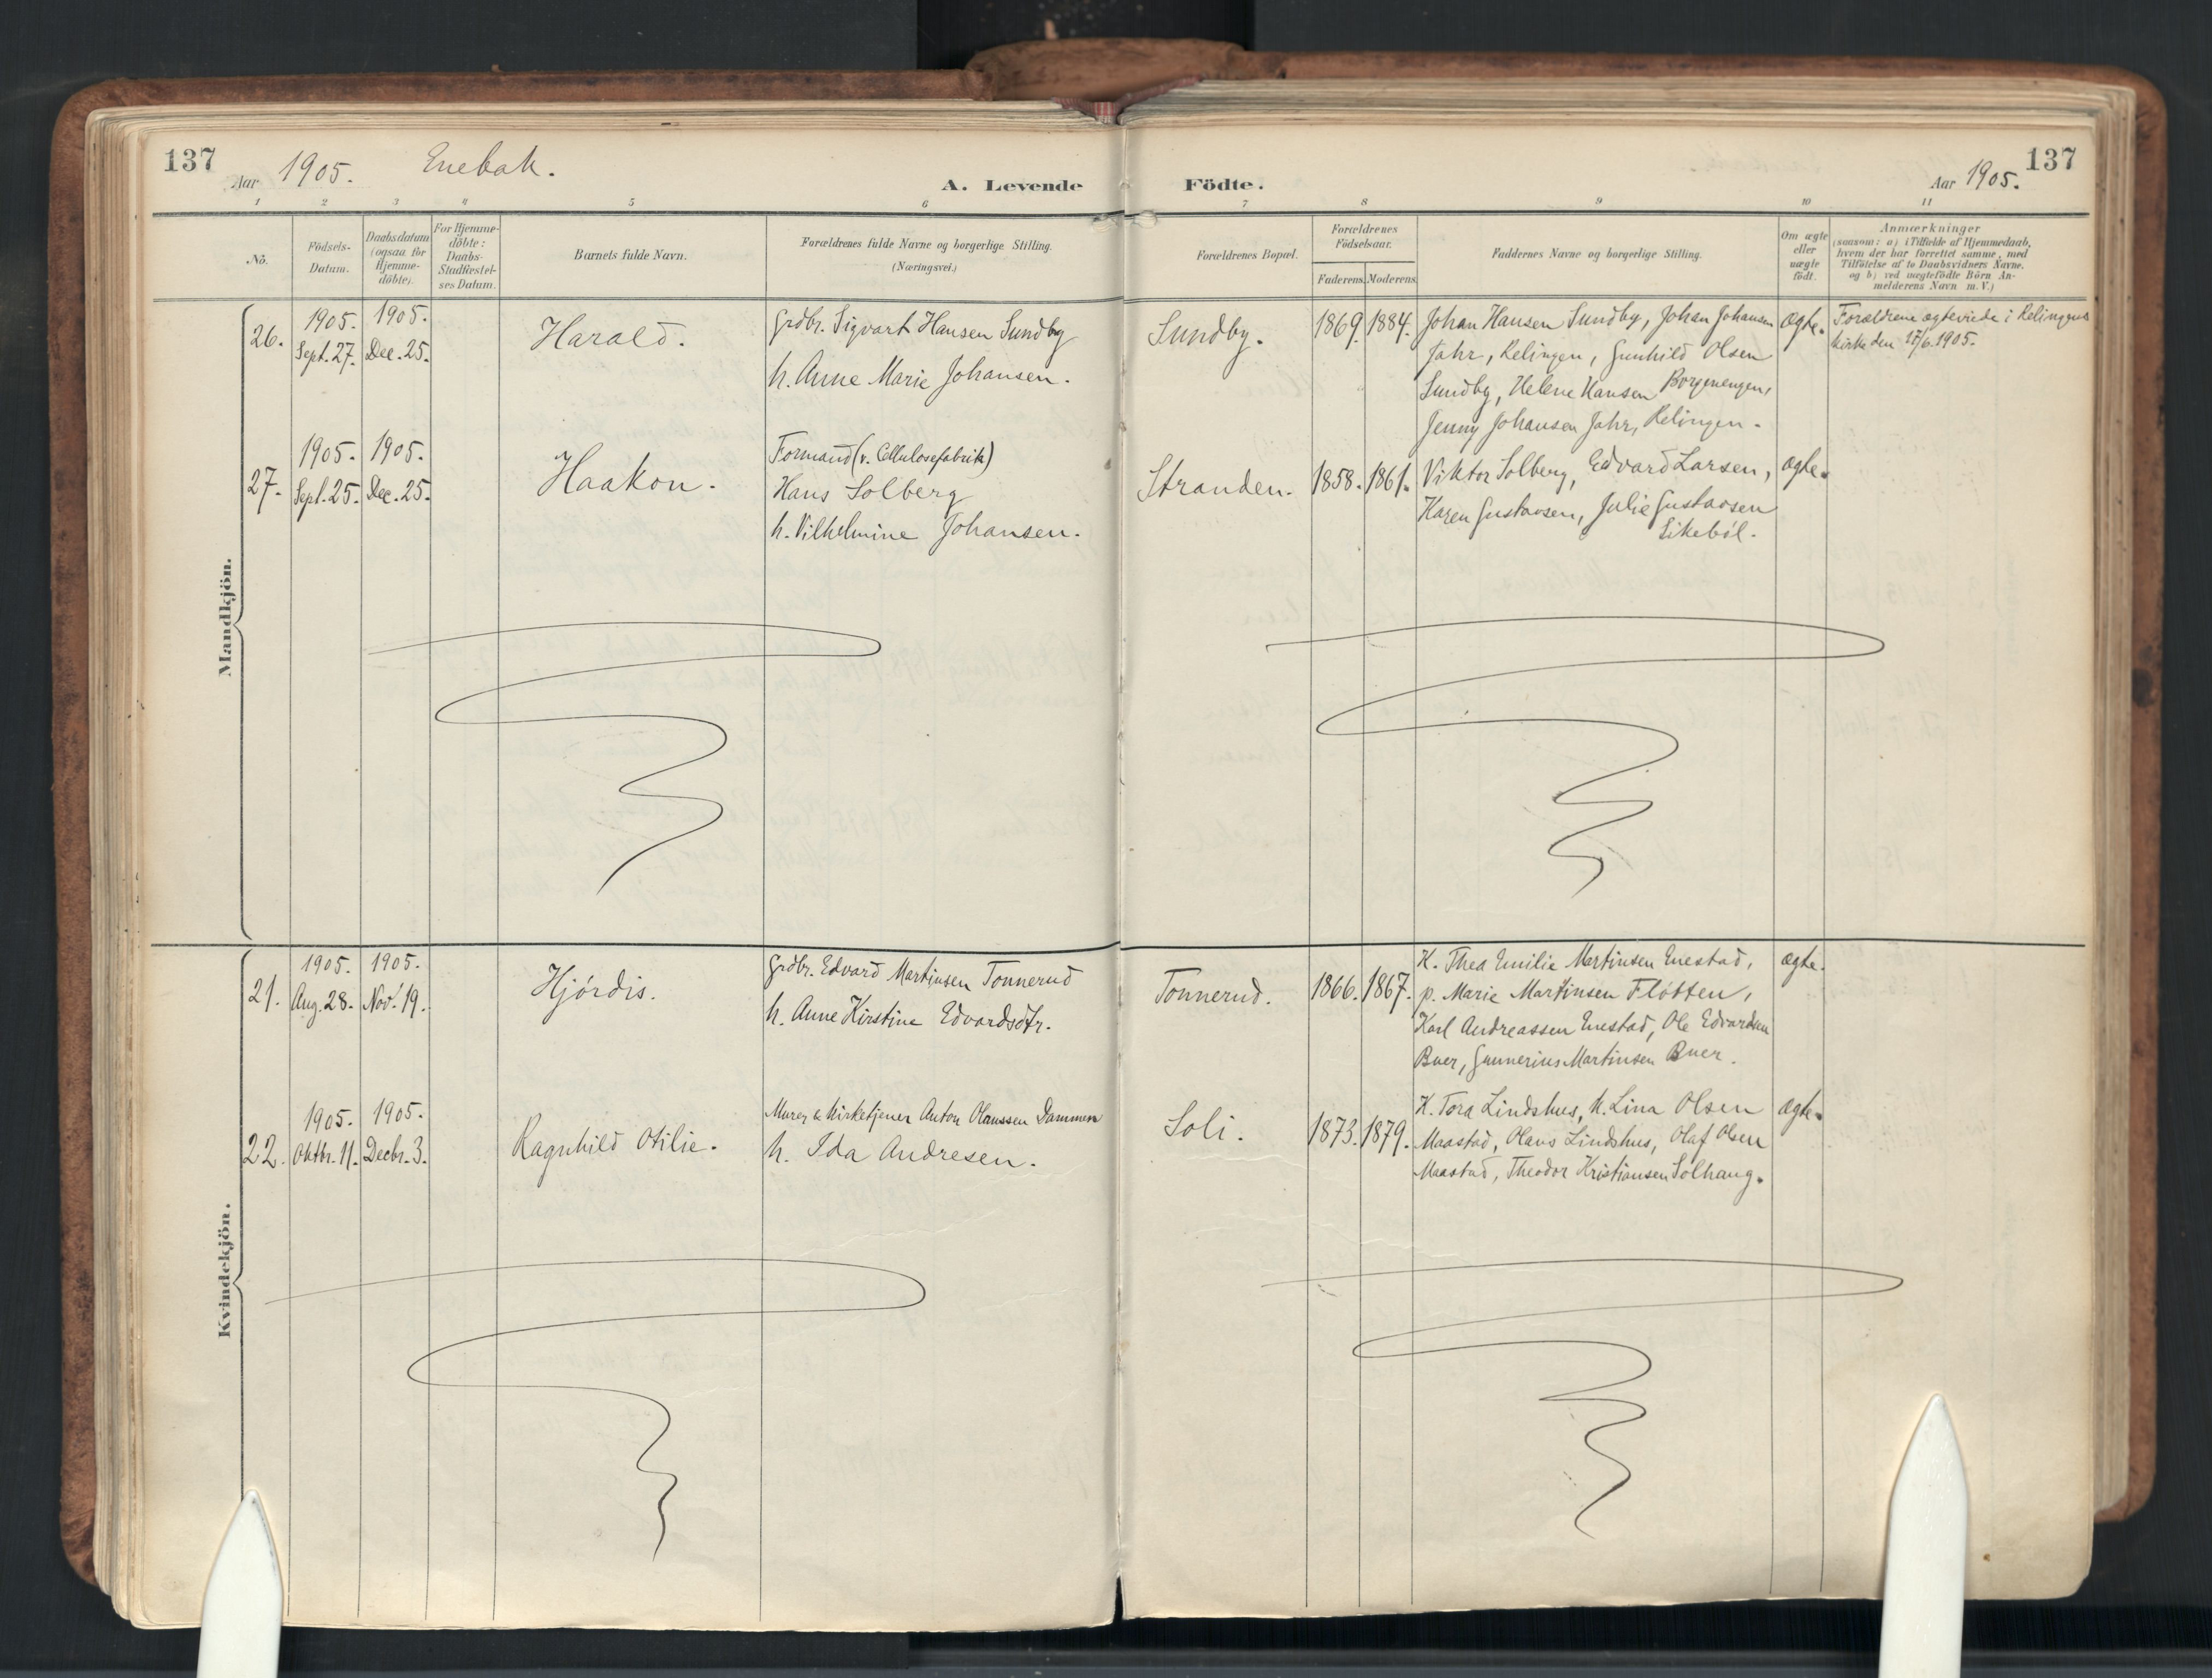 137
Aar 1905. Enebak.
A. Levende
Födte.
Aar 1905.
137
1 2 3 4 5 6 7 8 9 10 11
Nö.
Födsels-
Datum.
Daabsdatum
(ogsaa for
Hjemme-
döbte).
For Hjemme-
döbte:
Daabs-
Stadfæstel-
ses Datum.
Barnets fulde Navn.
Forældrenes fulde Navne og borgerlige Stilling.
(Næringsvei.)
Forældrenes Bopæl.
Forældrenes
Födselsaar.
Faderens. Moderens.
Faddernes Navne og borgerlige Stilling.
Om ægte
eller
uægte
födt.
Anmærkninger
(saasom: a) i Tilfælde af Hjemmedaab,
hvem der har forrettet samme, med
Tilföielse af to Daabsvidners Navne.
og b) ved uægtefödte Börn An-
melderens Navn m. V.)
Mandkjön.
26.
1905.
Sept. 27.
1905.
Dec. 25.
Harald.
Grdbr. Sigvart Hansen Sundby
h. Anne Marie Johansen.
Sundby.
1869. 1884.
Johan Hansen Sundby, Johan Johansen
Jahr, Relingen, Gunhild Olsen
Sundby, Helene Hansen Borgenengen,
Jenny Johansen Jahr, Relingen.
ægte.
Forældrene ægteviede i Relingens
kirke den 17/6 1905.
27.
1905.
Sept. 25.
1905.
Dec. 25.
Haakon.
Formand (v. Cellulosefabrik)
Hans Solberg
h. Vilhelmine Johansen.
Stranden.
1858. 1861.
Viktor Solberg, Edvard Larsen,
Karen Gustavsen, Julie Gustavsen
Ekeböl.
ægte.
Kvindekjön.
21.
1905.
Aug. 28.
1905.
Nov. 19.
Hjördis.
Grdbr. Edvard Martinsen Tonnerud
h. Anne Kirstine Edvardsdtr.
Tonnerud.
1866. 1867.
K. Thea Emilie Martinsen Enestad,
p. Marie Martinsen Flötten,
Karl Andreassen Enestad, Ole Edvardsen
Buer, Gunnerius Martinsen Buer.
ægte.
22.
1905.
Oktbr. 11.
1905.
Decbr. 3.
Ragnhild Otilie.
Murer & kirketjener Anton Olaussen Dammen
h. Ida Andresen.
Soli.
1873. 1879.
K. Tora Lindshus, K. Lina Olsen
Maastad, Olaus Lindshus, Olaf Olsen
Maastad, Theodor Kristiansen Solhaug.
ægte.